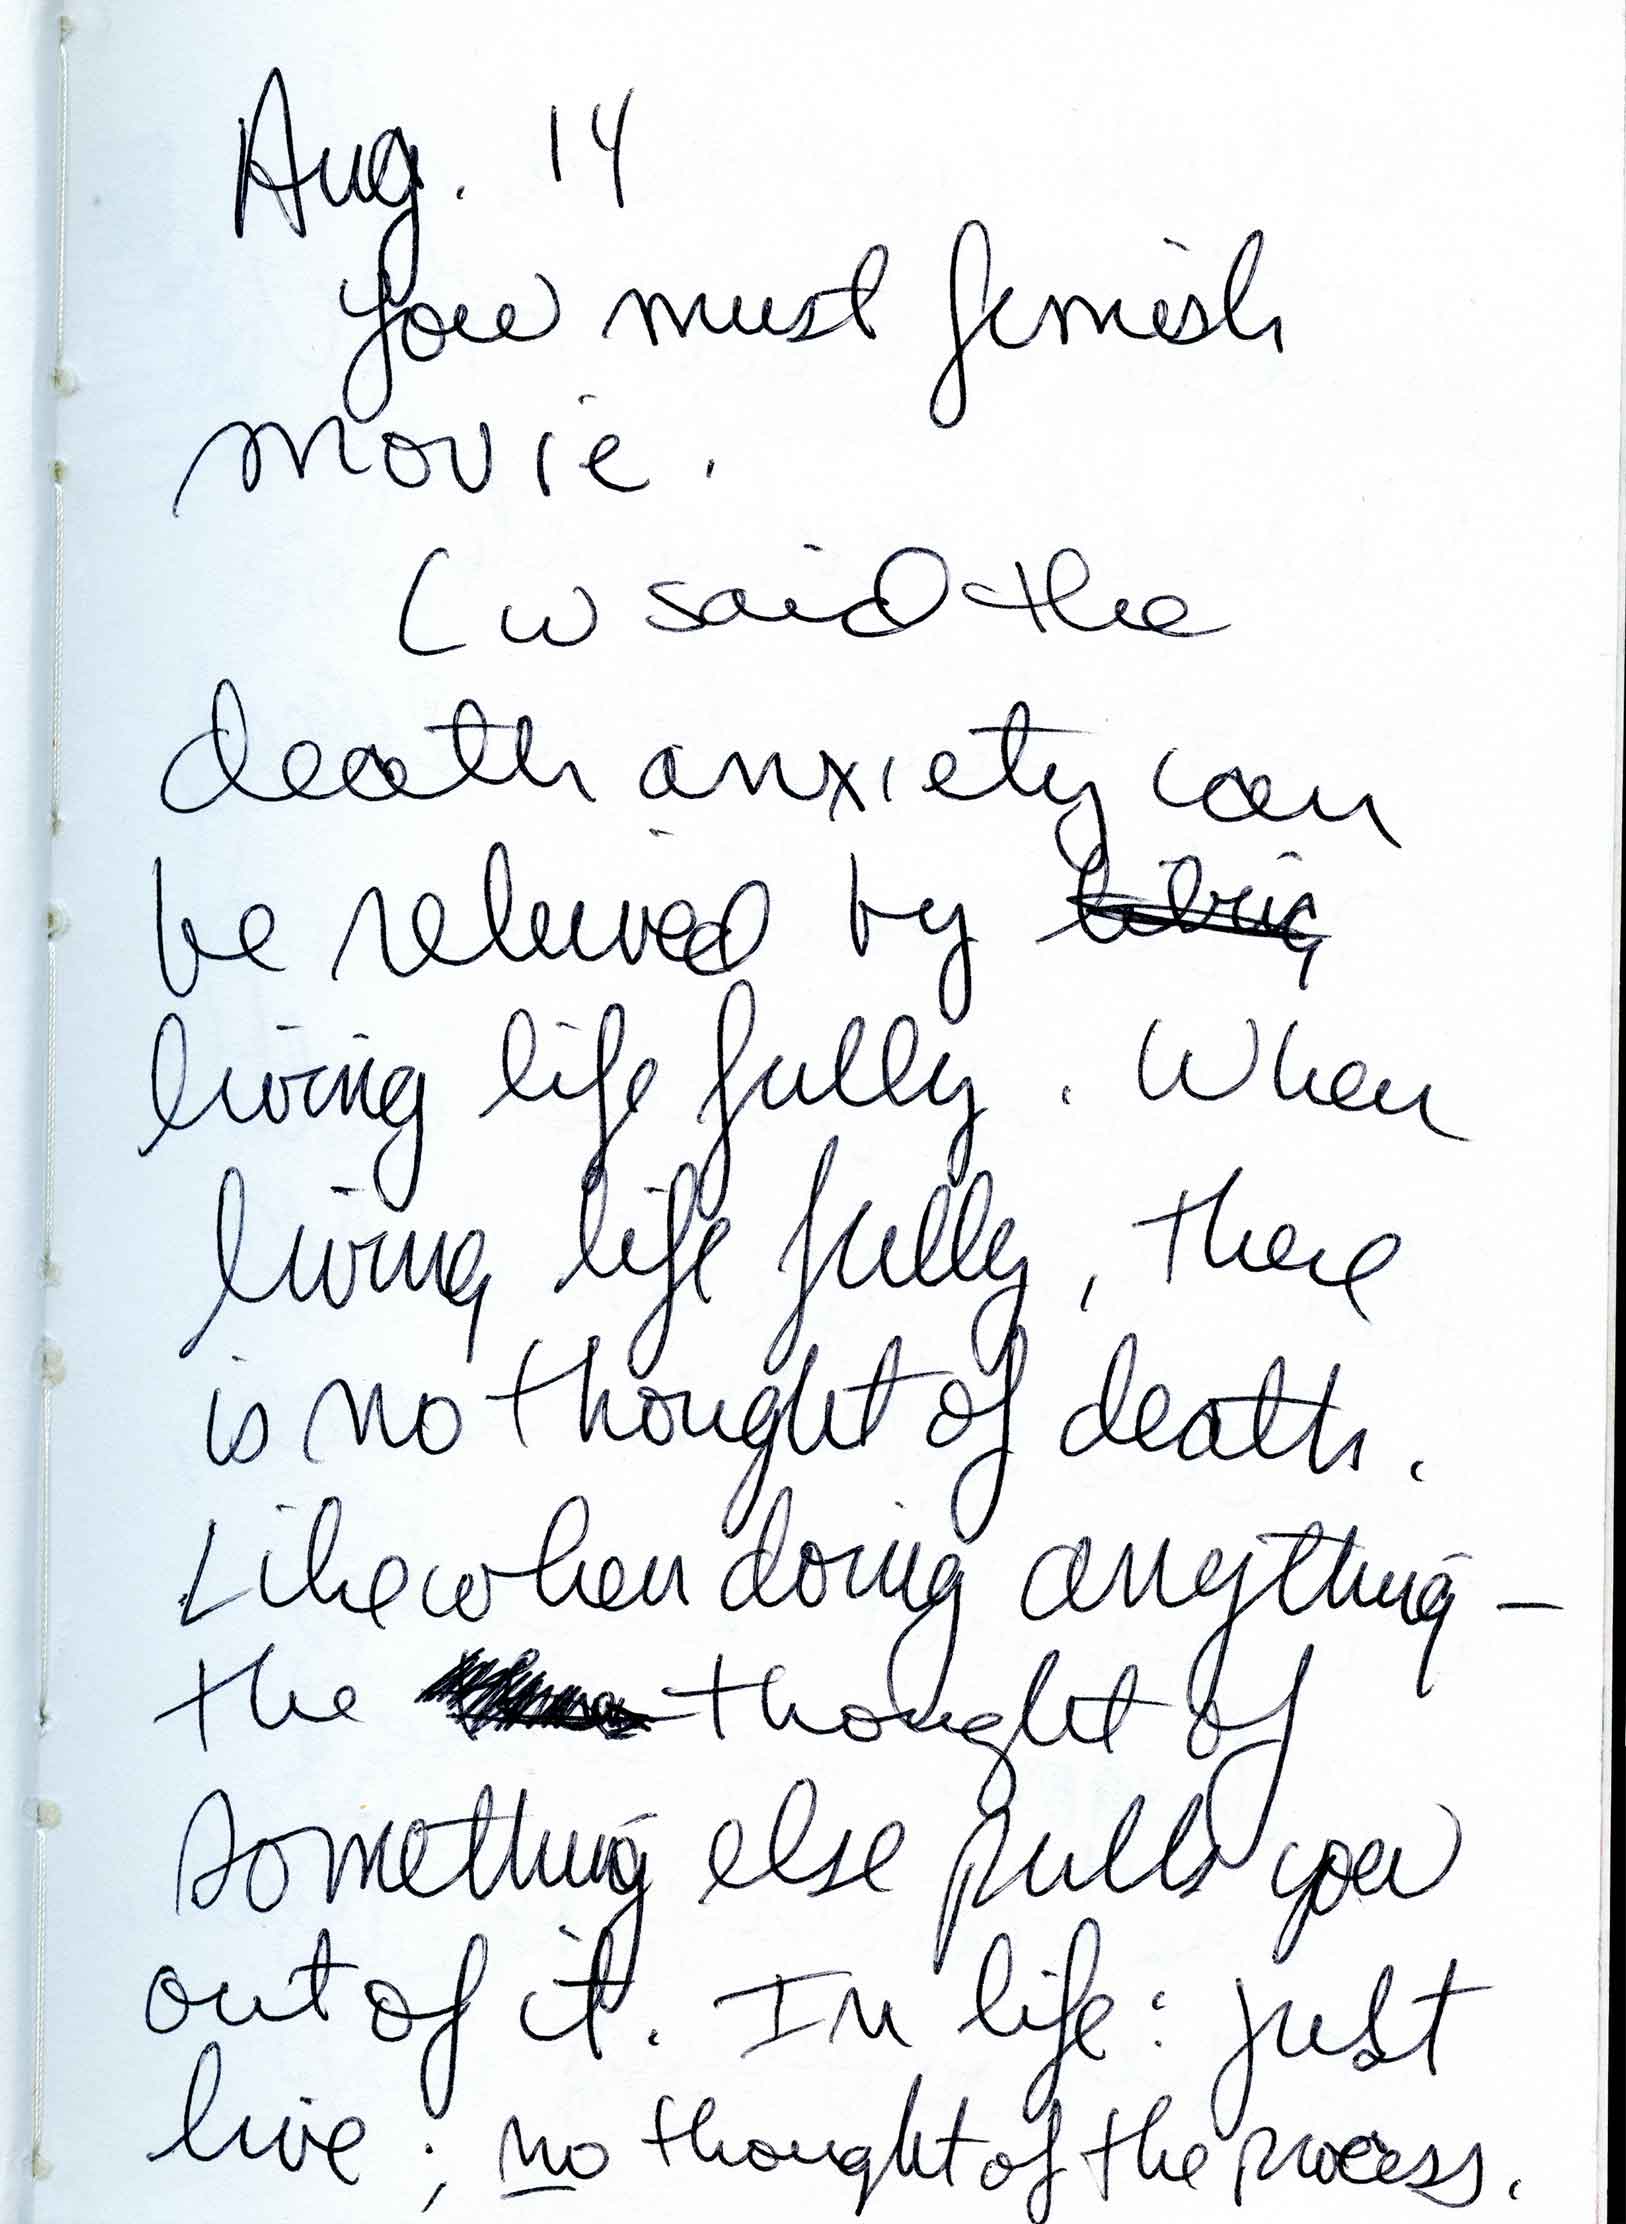 Aug. 14
You must finish
movie.
(w said the
death anxiety can
be relieved by
living life fully. When
living life fully, there
is no thought of death.
Like when doing anything –
the thought of
something else pulls you
out of it. In life: just
live; no thought of the process.